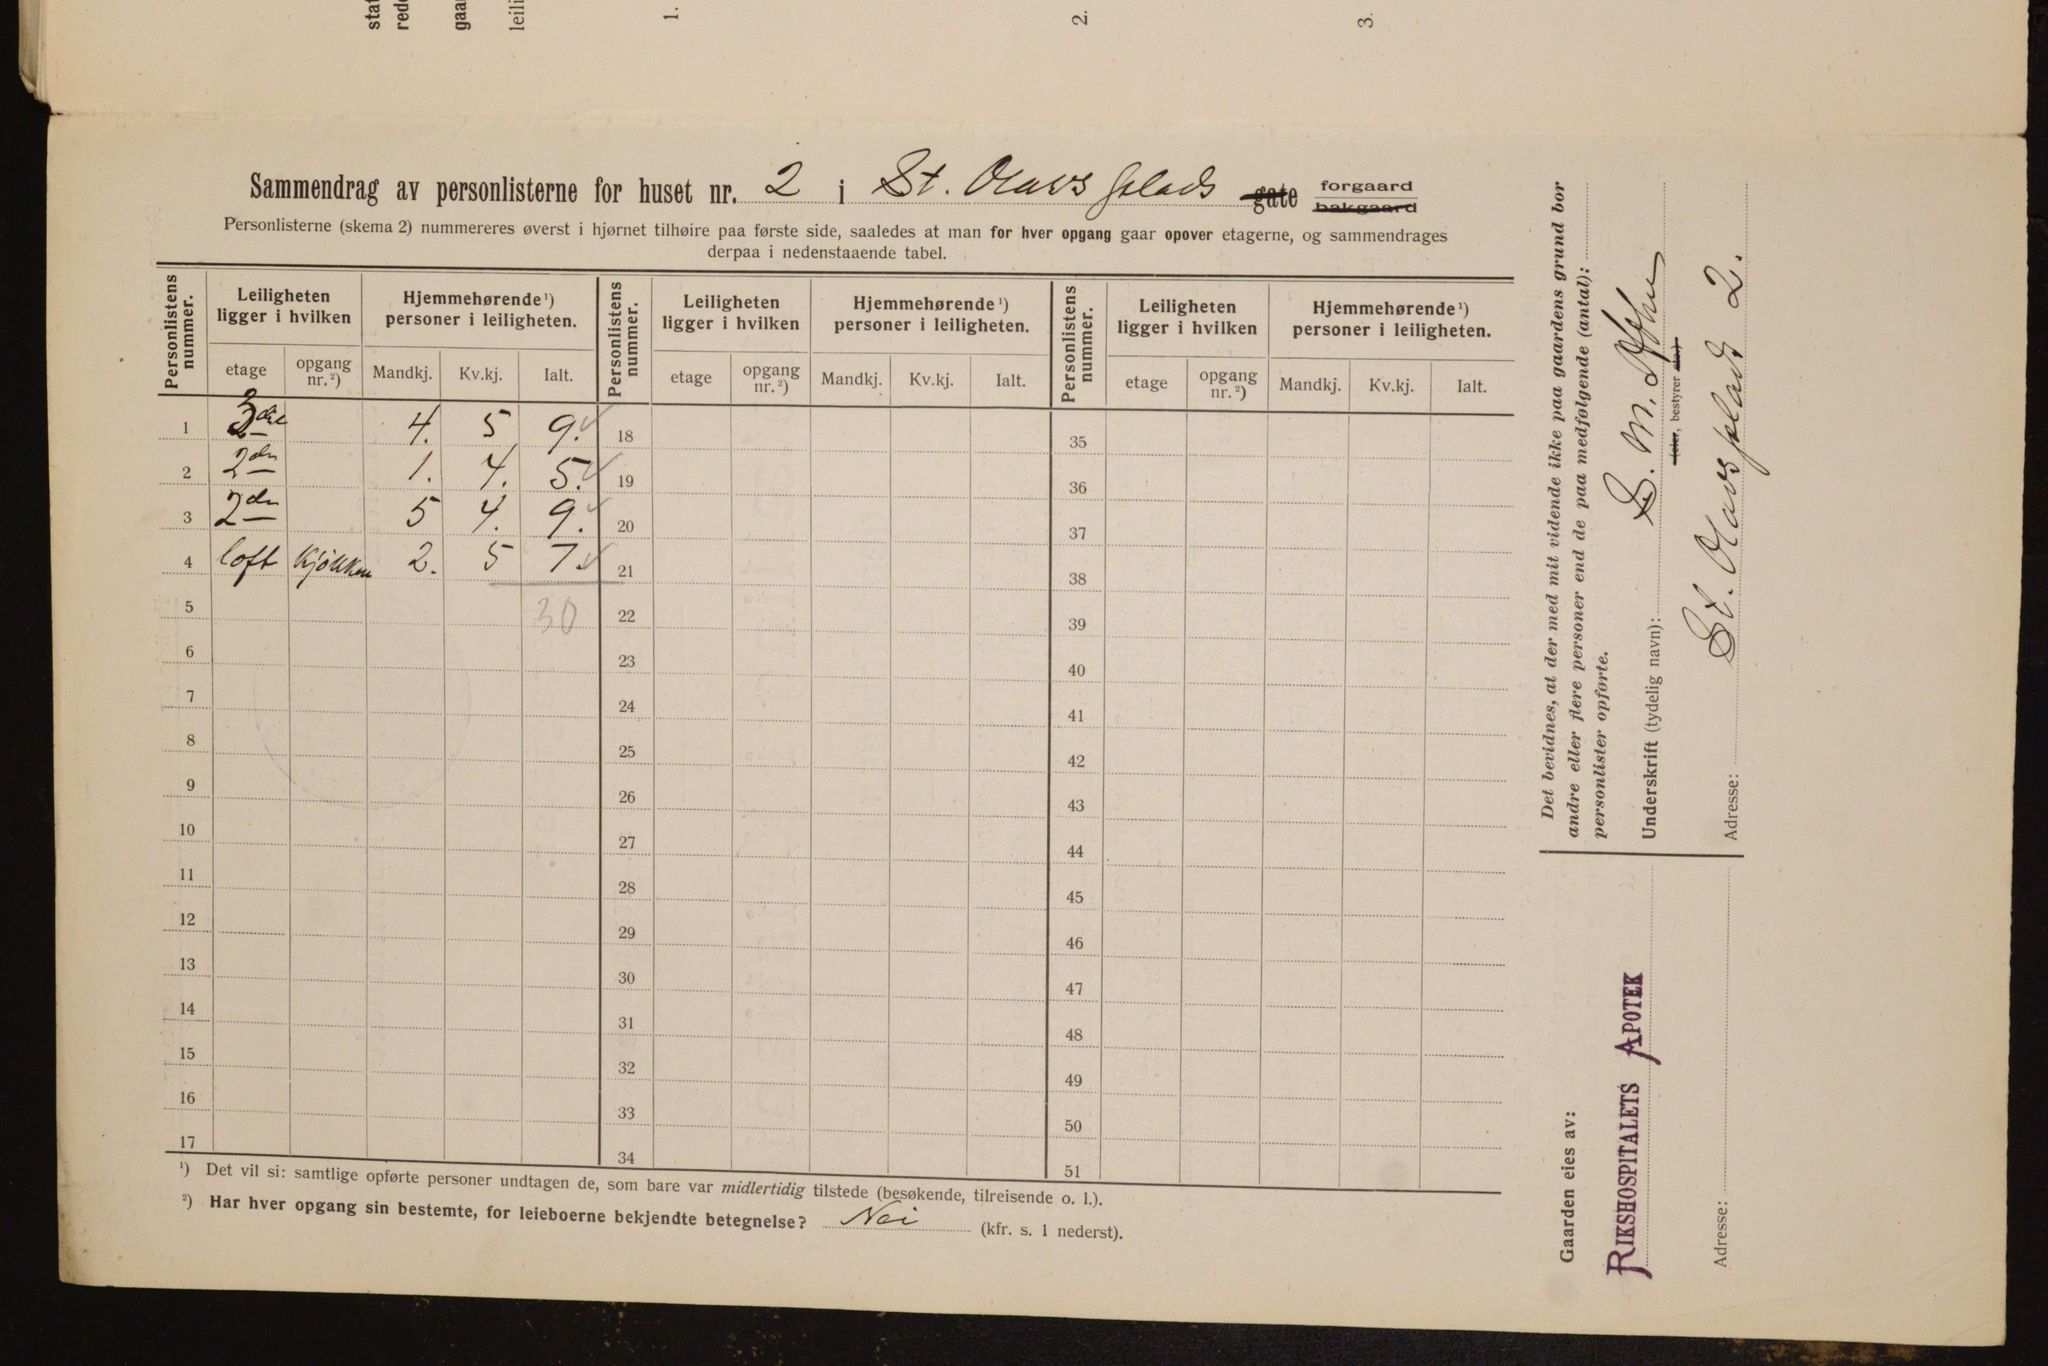 stat
rede
gaar
leili
1.
2.
3.
Sammendrag av personlisterne for huset nr. 2 i St. Olavs plads gate forgaard bakgaard
Personlisterne (skema 2) nummereres øverst i hjørnet tilhøire paa første side, saaledes at man for hver opgang gaar opover etagerne, og sammendrages
derpaa i nedenstaaende tabel.
Personlistens nummer. Leiligheten ligger i hvilken Hjemmehørende ¹) personer i leiligheten. Personlistens nummer. Leiligheten ligger i hvilken Hjemmehørende ¹) personer i leiligheten. Personlistens nummer. Leiligheten ligger i hvilken Hjemmehørende ¹) personer i leiligheten.
etage opgang nr. ²) Mandkj. Kv.kj. Ialt. etage opgang nr. ²) Mandkj. Kv.kj. Ialt. etage opgang nr. ²) Mandkj. Kv.kj. Ialt.
1 3die 4. 5 9. 18 35
2 2den 1. 4. 5. 19 36
3 2den 5 4. 9. 20 37
4 loft Kjøkken 2. 5 7. 21 38
5 30 22 39
6 23 40
7 24 41
8 25 42
9 26 43
10 27 44
11 28 45
12 29 46
13 30 47
14 31 48
15 32 49
16 33 50
17 34 51
¹) Det vil si: samtlige opførte personer undtagen de, som bare var midlertidig tilstede (besøkende, tilreisende o. l.).
²) Har hver opgang sin bestemte, for leieboerne bekjendte betegnelse? Nei (kfr. s. 1 nederst).
Det bevidnes, at der med mit vidende ikke paa gaardens grund bor
andre eller flere personer end de paa medfølgende (antal):
personlister opførte.
Underskrift (tydelig navn): S. M.
(eier, bestyrer etc.)
Adresse: St. Olavs plads 2.
Gaarden eies av:
RIKSHOSPITALETS APOTEK
Adresse: